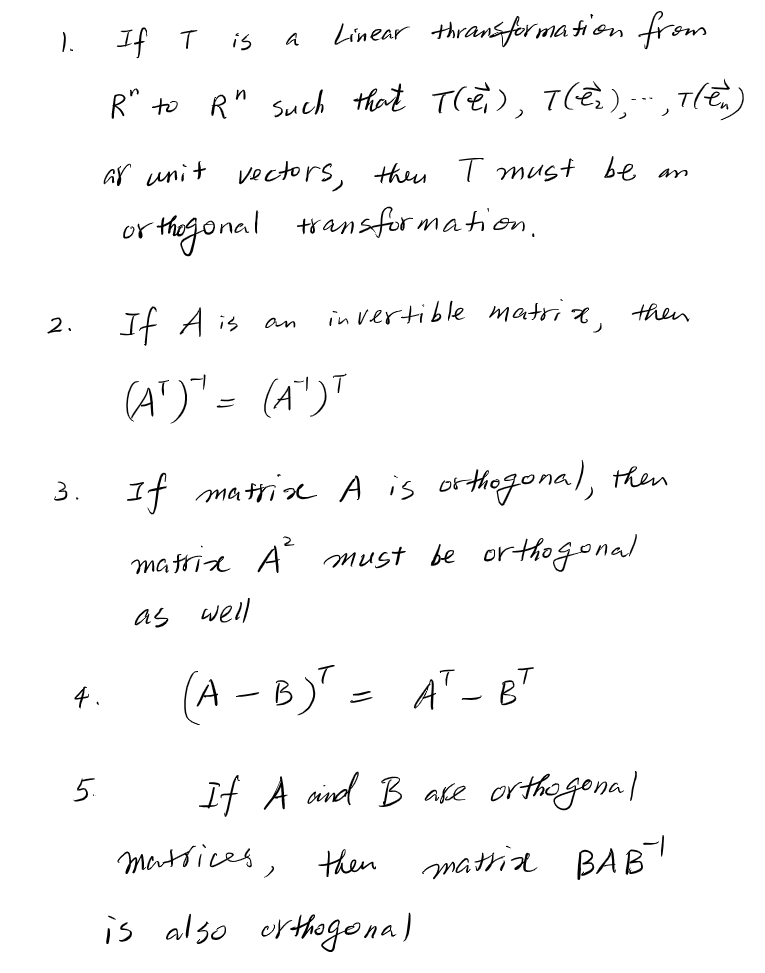 1. If T is a Linear thransformation from
Rⁿ to Rⁿ such that T(e⃗₁), T(e⃗₂), ⋯, T(e⃗ₙ)
ar unit vectors, then T must be an
orthogonal transformation.
2. If A is an invertible matrix, then
(Aᵀ)⁻¹ = (A⁻¹)ᵀ
3. If matrix A is orthogonal, then
matrix A² must be orthogonal
as well
4. (A − B)ᵀ = Aᵀ − Bᵀ
5. If A and B are orthogonal
matrices, then matrix BAB⁻¹
is also orthogonal